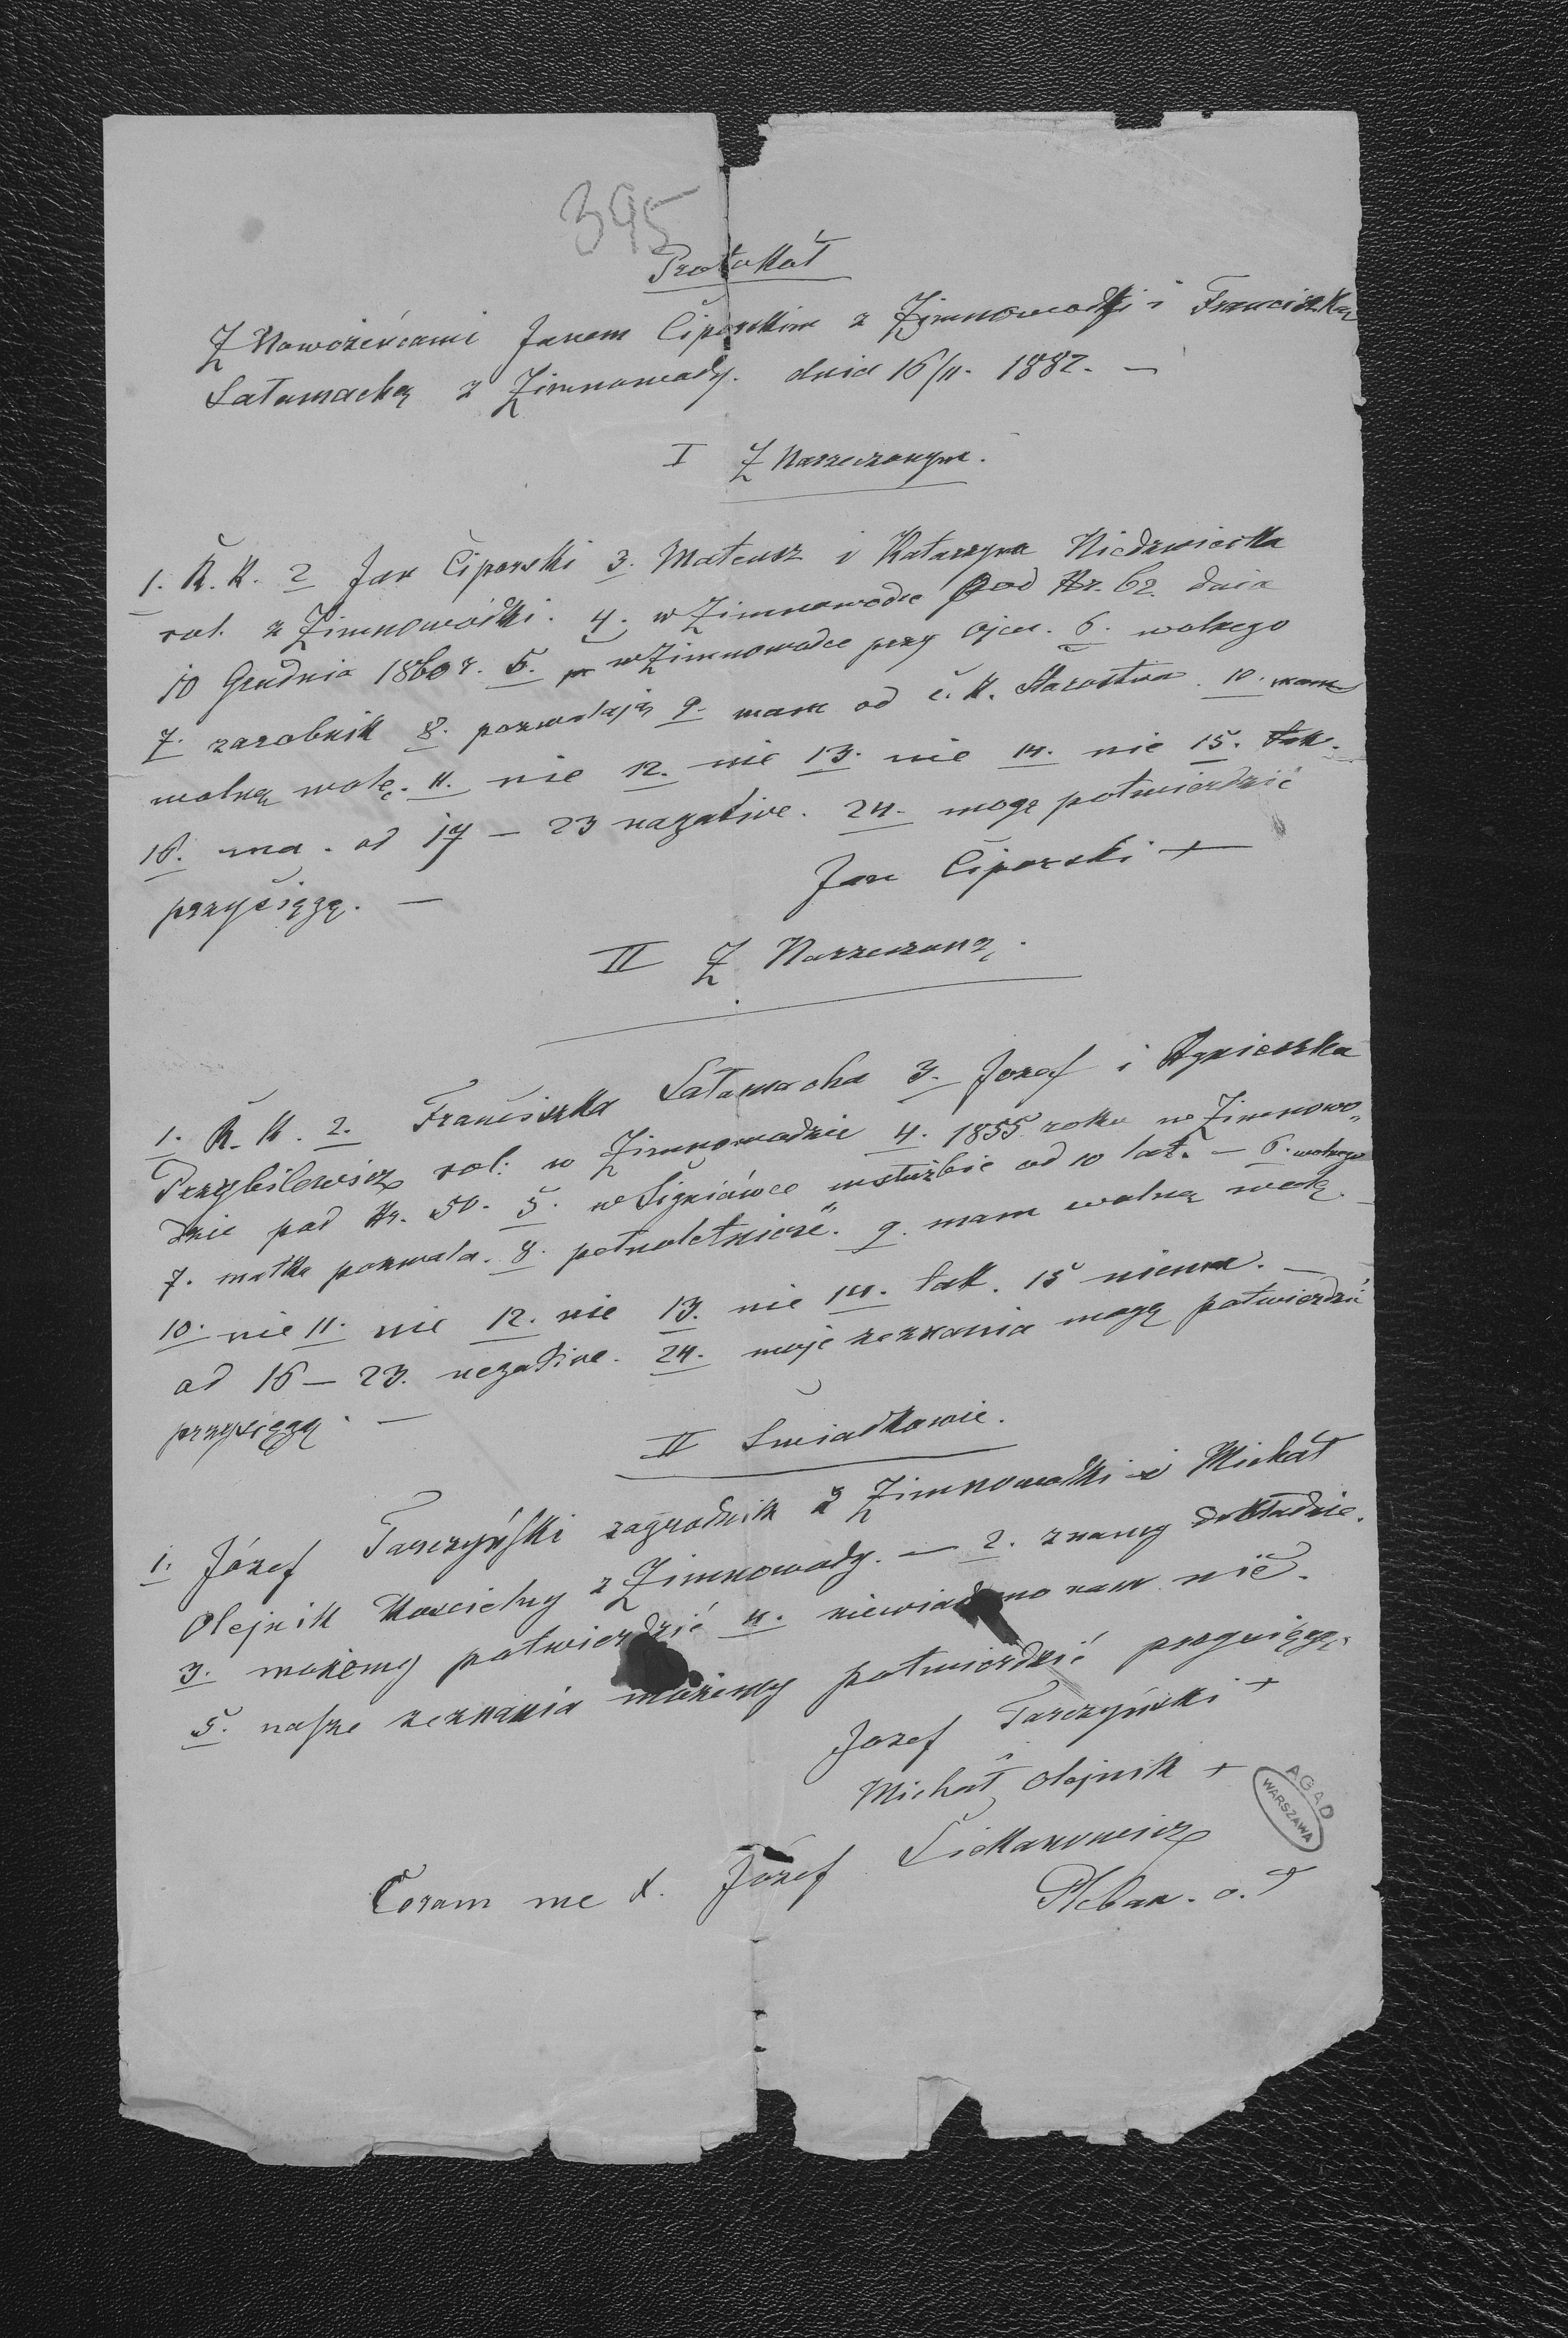 395
Protokół
Z Nowożeńcami Janem Ciporskim z Zimnowodki i Franciszką
Sałamachą z Zimnowody. dnia 16/11. 1882. —
I Z Narzeczonym.
1. R. K. 2 Jan Ciporski 3. Mateusz i Katarzyna Niedzwiecka
rol. z Zimnowódki. 4. w Zimnowodce pod Nr. 62. dnia
10 Grudnia 1860 r. 5. w Zimnowodce przy ojcu. 6. wolnego
7. zarobnik 8. pozwalają 9. mam od c. K. Starostwa. 10. mam
wolną wolę. 11. nie 12. nie 13. nie 14. nie 15. tak.
16. ma. od 17 — 23 nagative. 24. mogę potwierdzić
przysięgą. —
Jan Ciporski +
II Z Narzeczoną.
1. R. K. 2. Franciszka Sałamacha 3. Jozef i Agnieszka
Przybilewicz rol: w Zimnowodzie 4. 1855 roku w Zimnowo„
dzie pod Nr. 50. 5. w Signiówce w służbie od 10 lat. — 6. wolnego
7. matka pozwala. 8. pełnoletniość. 9. mam wolną wolę. —
10. nie 11. nie 12. nie 13. nie 14. tak. 15 niema. —
od 16 — 23. negative. 24. moje zeznania mogę potwierdzić
przysięgą. —
II Świadkowie.
1. Józef Tarczyński zagrodnik z Zimnowodki i Michał
Olejnik Koscielny z Zimnowody. — 2. znamy dokładnie.
3. możemy potwierdzić 4. niewiadomo nam nic.
5. nasze zeznania możemy potwierdzić przysięgą.
Jozef Tarczyński +
Michał Olejnik +
AGAD
WARSZAWA
Coram me X. Józef
Pleban. o. ł